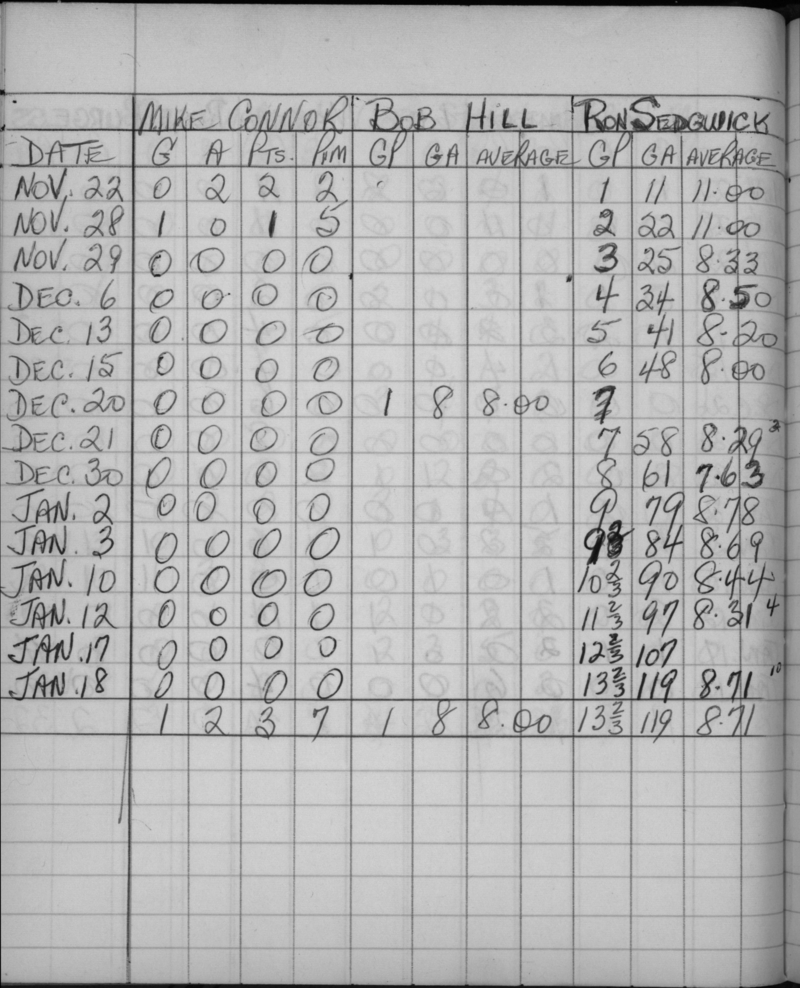 MIKE CONNOR BOB HILL RON SEDGWICK
DATE G A PTS. PIM GP GA AVERAGE GP GA AVERAGE
NOV. 22 0 2 2 2 1 11 11.00
NOV. 28 1 0 1 5 2 22 11.00
NOV. 29 0 0 0 0 3 25 8.33
DEC. 6 0 0 0 0 4 34 8.50
DEC. 13 0 0 0 0 5 41 8.20
DEC. 15 0 0 0 0 6 48 8.00
DEC. 20 0 0 0 0 1 8 8.00 7
DEC. 21 0 0 0 0 7 58 8.29
DEC. 30 0 0 0 0 8 61 7.63
JAN. 2 0 0 0 0 9 79 8.78
JAN. 3 0 0 0 0 9⅔ 84 8.69
JAN. 10 0 0 0 0 10⅔ 90 8.44
JAN. 12 0 0 0 0 11⅔ 97 8.31 4
JAN. 17 0 0 0 0 12⅔ 107
JAN. 18 0 0 0 0 13⅔ 119 8.71 10
1 2 3 7 1 8 8.00 13⅔ 119 8.71